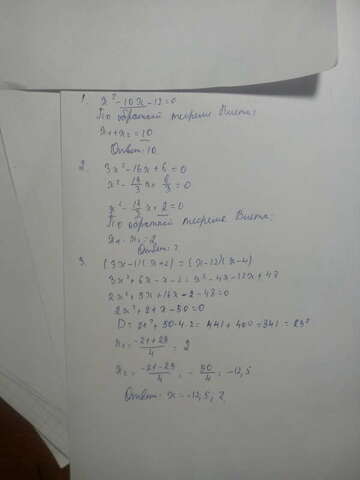 1. x² - 10x - 12 = 0
По обратной теореме Виета:
x₁ + x₂ = 10
Ответ: 10.
2. 3x² - 16x + 6 = 0
x² - x + 6/3 = 0
x² - x + 2 = 0
По обратной теореме Виета:
x₁ · x₂ = 2
Ответ: 2
3. (3x - 1)(x + 2) = (x - 12)(x - 4)
3x² + 6x - x - 2 = x² - 4x - 12x + 48
2x² + 5x + 16x - 2 - 48 = 0
2x² + 21x - 50 = 0
D = 21² + 50·4·2 = 441 + 400 = 841 = 29²
x₁ = (-21+29)/4 = 2
x₂ = (-21-29)/4 = -50/4 = -12,5
Ответ: x = -12,5; 2